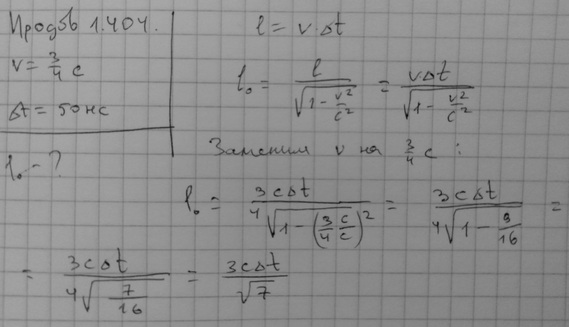 Иродов 1.404.
v = 3/4 c
Δt = 50 нс
l₀ - ?
l = v·Δt
l₀ = l / √(1 - v²/c²) = vΔt / √(1 - v²/c²)
Заменим v на 3/4 c :
l₀ = 3cΔt / 4√(1 - (3/4 c/c)²) = 3cΔt / 4√(1 - 9/16) =
= 3cΔt / 4√(7/16) = 3cΔt / √7